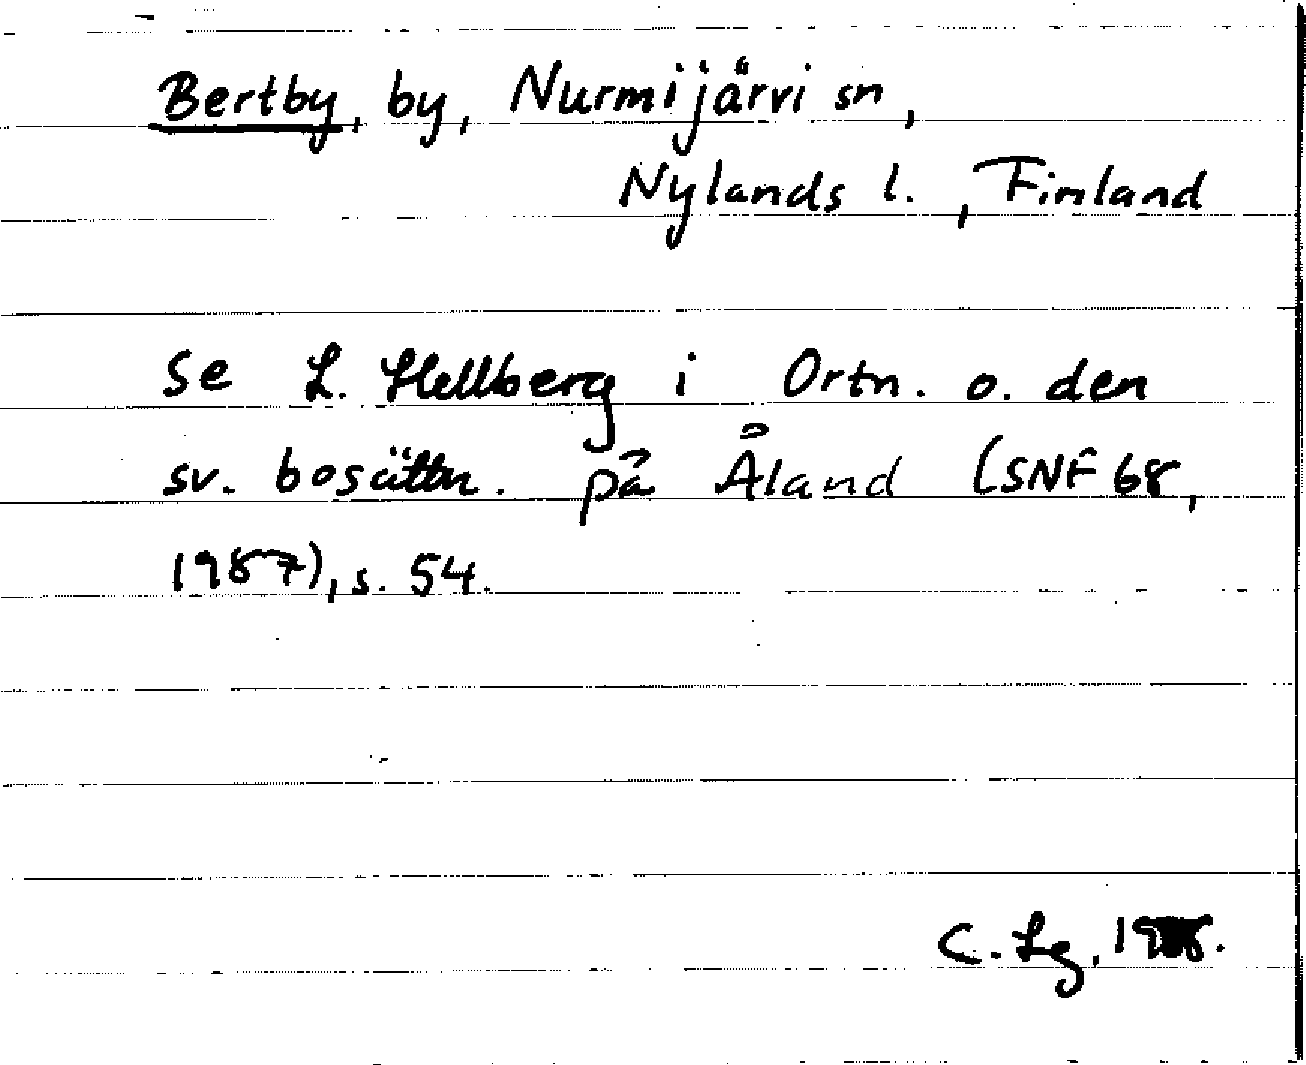 Bertby, by, Nurmijärvi sn,
Nylands l., Finland
Se L. Hellberg i Ortn. o. den
sv. bosättn. på Åland (SNF 68,
1987), s. 54.
C. Lg,